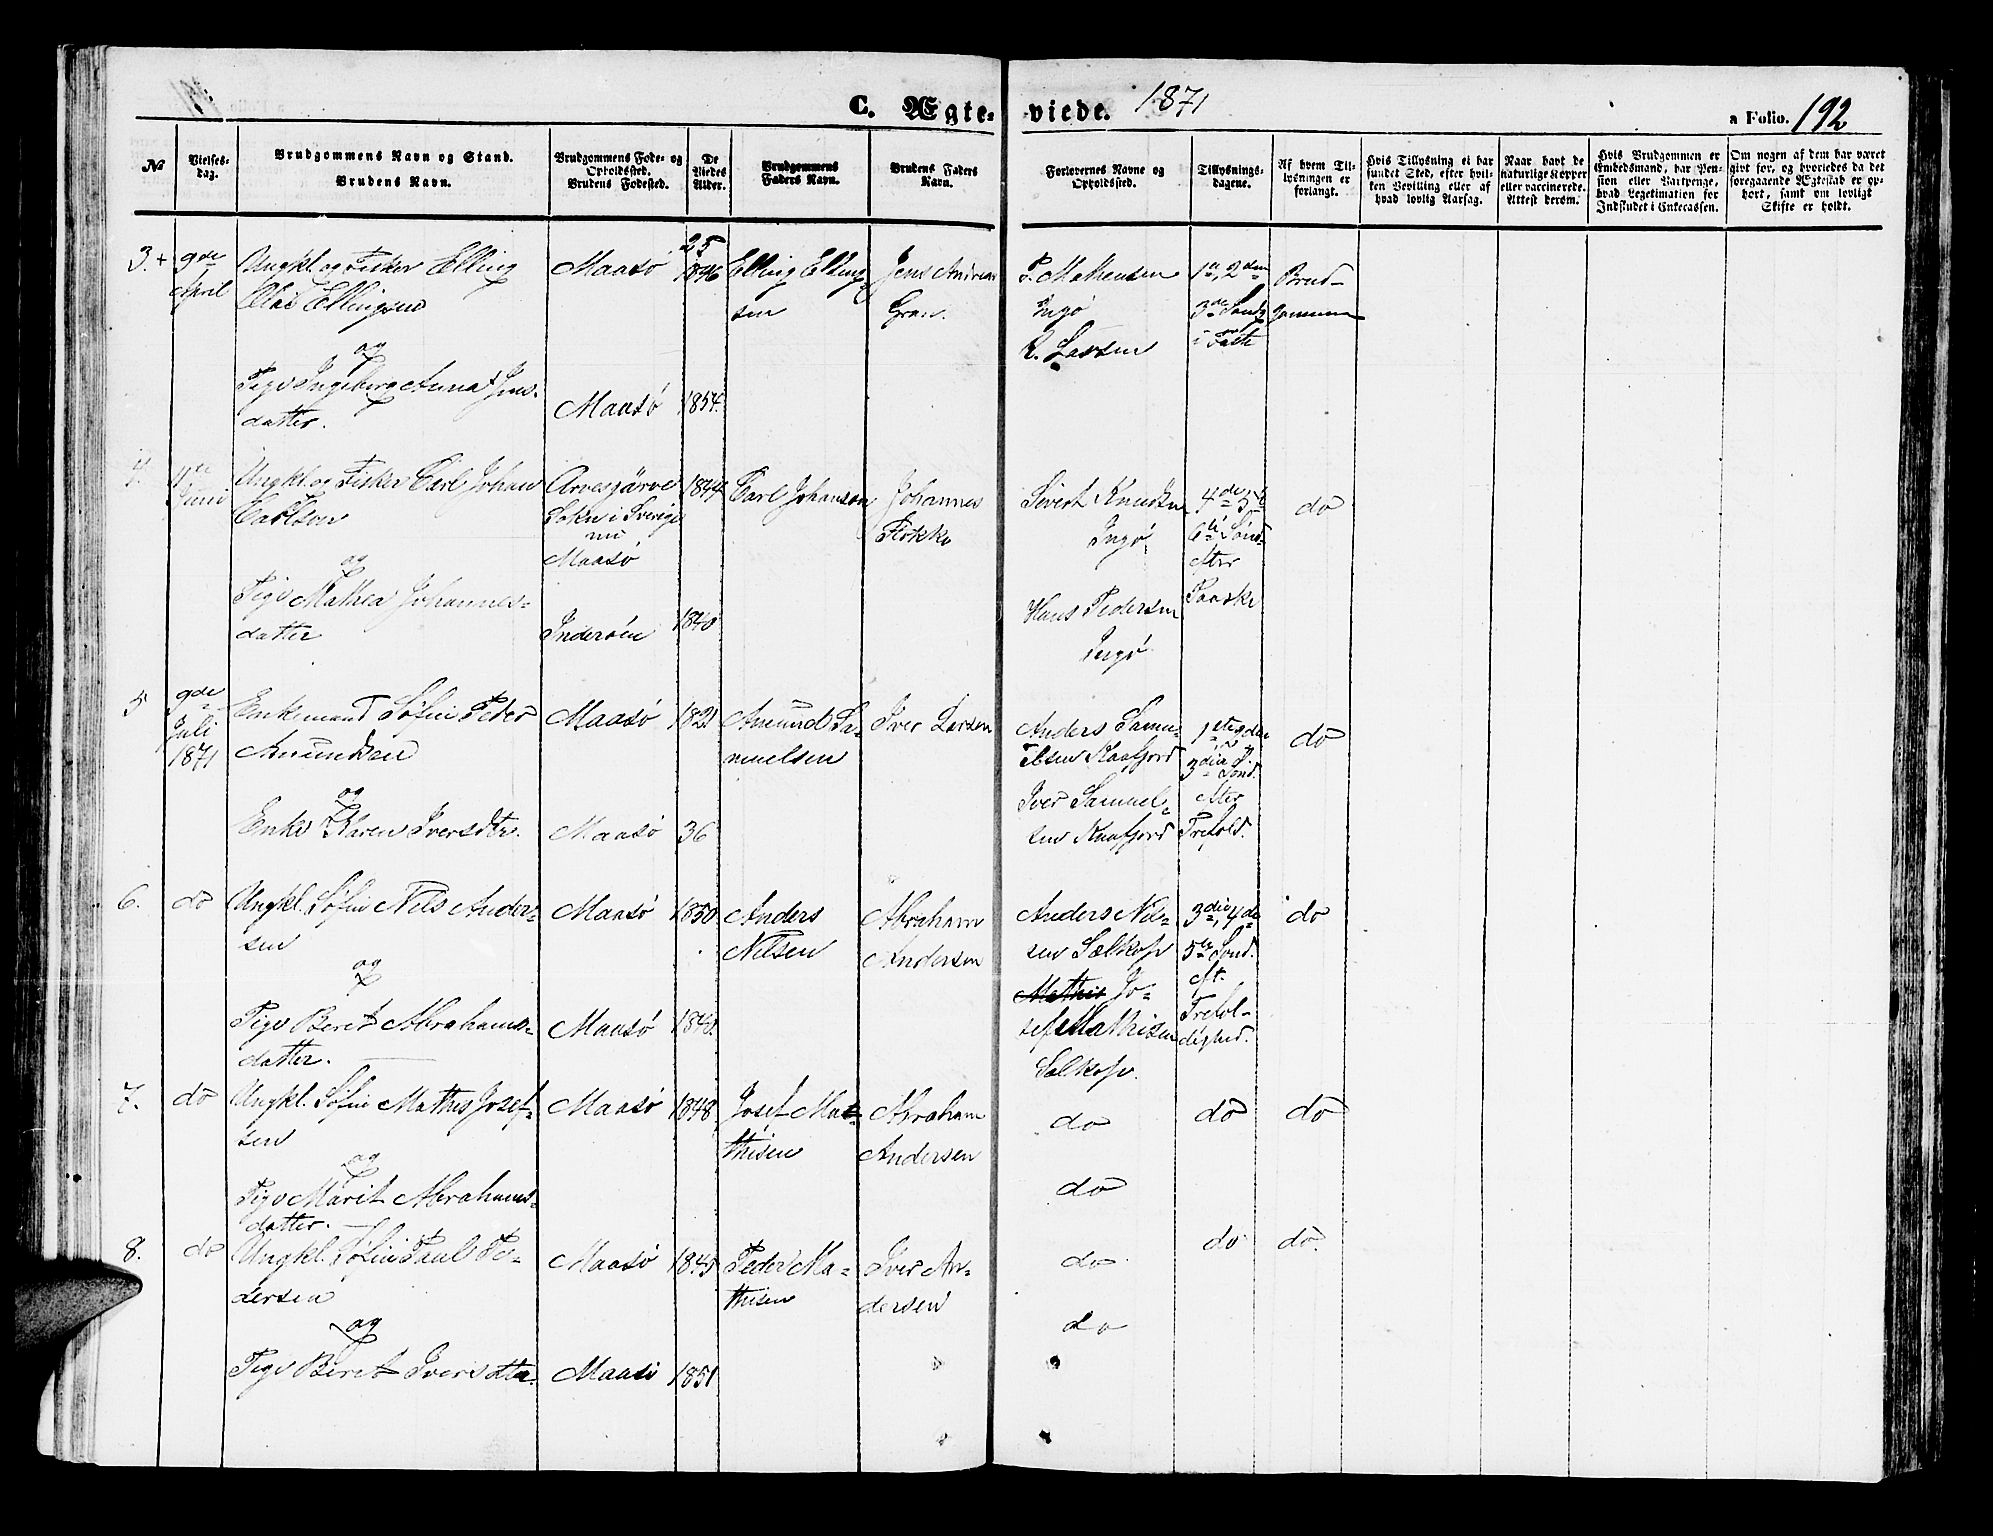 C. Ægteviede. 1871
a Folio. 192
No
Vielsesdag.
Brudgommens Navn og Stand.
Brudens Navn.
Brudgommens Føde- og Opholdssted.
Brudens Fødested.
De Viedes Alder.
Brudgommens Faders Navn.
Brudens Faders Navn.
Forlovernes Navne og Opholdssted.
Tillysningsdagene.
Af hvem Tillysningen er forlangt.
Hvis Tillysning ei har fundet Sted, efter hvilken Bevilling eller af hvad lovlig Aarsag.
Naar havt de naturlige Kopper eller vaccinerede. Attest derom.
Hvis Brudgommen er Embedsmand, har Pension eller Vartpenge, hvad Legetimation for Indskudet i Enkecassen.
Om nogen af dem har været givt før, og hvorledes da det foregaaende Ægteskab er ophørt, samt om lovligt Skifte er holdt.
3.+ 9de April
Ungkl. og Fisker Elling
Elias Ellingsen
og
Pige Ingeborg Anna Jens-
datter.
Maasø
Maasø
25
1846
1854.
Elling Elling
sen
Jens Andreas
Gran.
P. Mathensen
Ingø
L. Larsen
1ste, 2den
3die Sønd
i Faste
Brud-
gommen
4. 4de Juni
Ungkl. og Fisker Carl Johan
Carlson
og
Pige Mathea Johannes-
datter
Arvesjärve
Sokn i Sverige
nu
Maasø
Inderøen
1844
1840
Carl Johanson
Johannes
Flokko
Sivert Knudsen
Ingø
Hans Pedersen
Ingø
4de 5te
6te Sønd
efter
Paaske
do
5 9de Juli 1871
Enkemand Søfin Peder
Amundsen
og
Enke Karen Iversdtr.
Maasø
Maasø
1821
36
Amund Sa-
muelsen
Iver Larsen
Anders Samu-
elsen Kaafjord
Iver Samuel-
sen Kaafjord
1ste 2den
3die Sønd.
efter
Trefold.
do
6. do
Ungkl. Søfin Nils Ander-
sen
og
Pige Beret Abrahams-
datter.
Maasø
Maasø
1850
1848
Anders
Nilsen
Abraham
Andersen
Anders Nil-
sen Sælkop
Mathis Jo-
sef Mathisen
Sælkop.
3die, 4de
5te Sønd.
eft.
Trefol-
dighed.
do
7. do
Ungkl. Søfin Mathis Josef-
sen
og
Pige Marit Abrahams-
datter.
Maasø
1848
Josef Ma-
thisen
Abraham
Andersen
do
do
do
do
8. do
Ungkl. Søfin Paul Pe-
dersen
og
Pige Beret Iversdtr.
Maasø
Maasø
1845
1851
Peder Ma-
thisen
Iver An-
dersen
do
do
do
do.